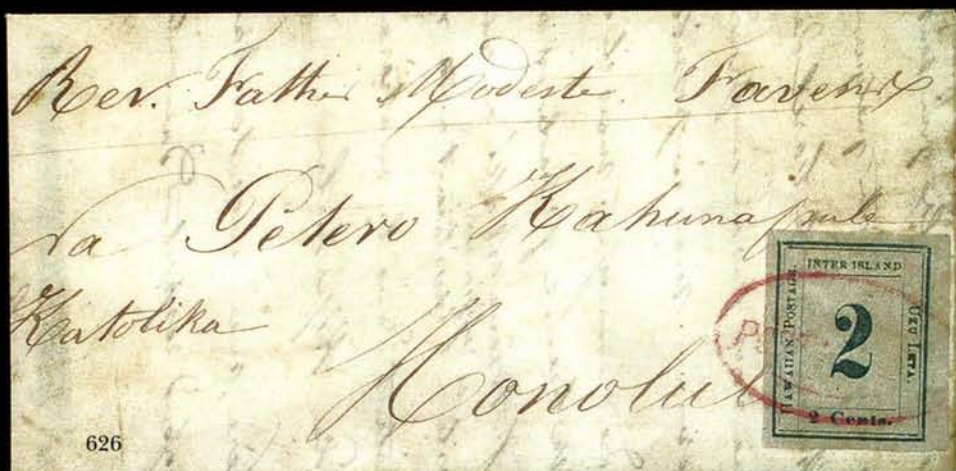 Rev. Father Modeste Favens
na Petero Kahunapule
Katolika
Honolulu
INTER ISLAND
HAWAIIAN POSTAGE.
2
UKU LETA.
2 Cents.
626